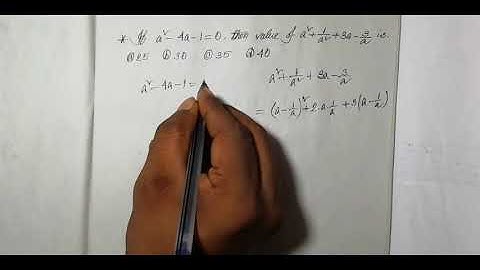 * If a² - 4a - 1 = 0, then value of a² + 1/a² + 3a - 3/a is
ⓐ 25 ⓑ 30 ⓒ 35 ⓓ 40
a² - 4a - 1 =
a² + 1/a² + 3a - 3/a
= (a - 1/a)² + 2.a.1/a + 3(a - 1/a)